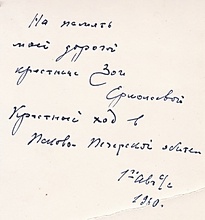 На память
моей дорогой
крестнице Зои
Ермолаевой
Крестный ход в
Псково Печерской обители
1го Авг с/с
1960.